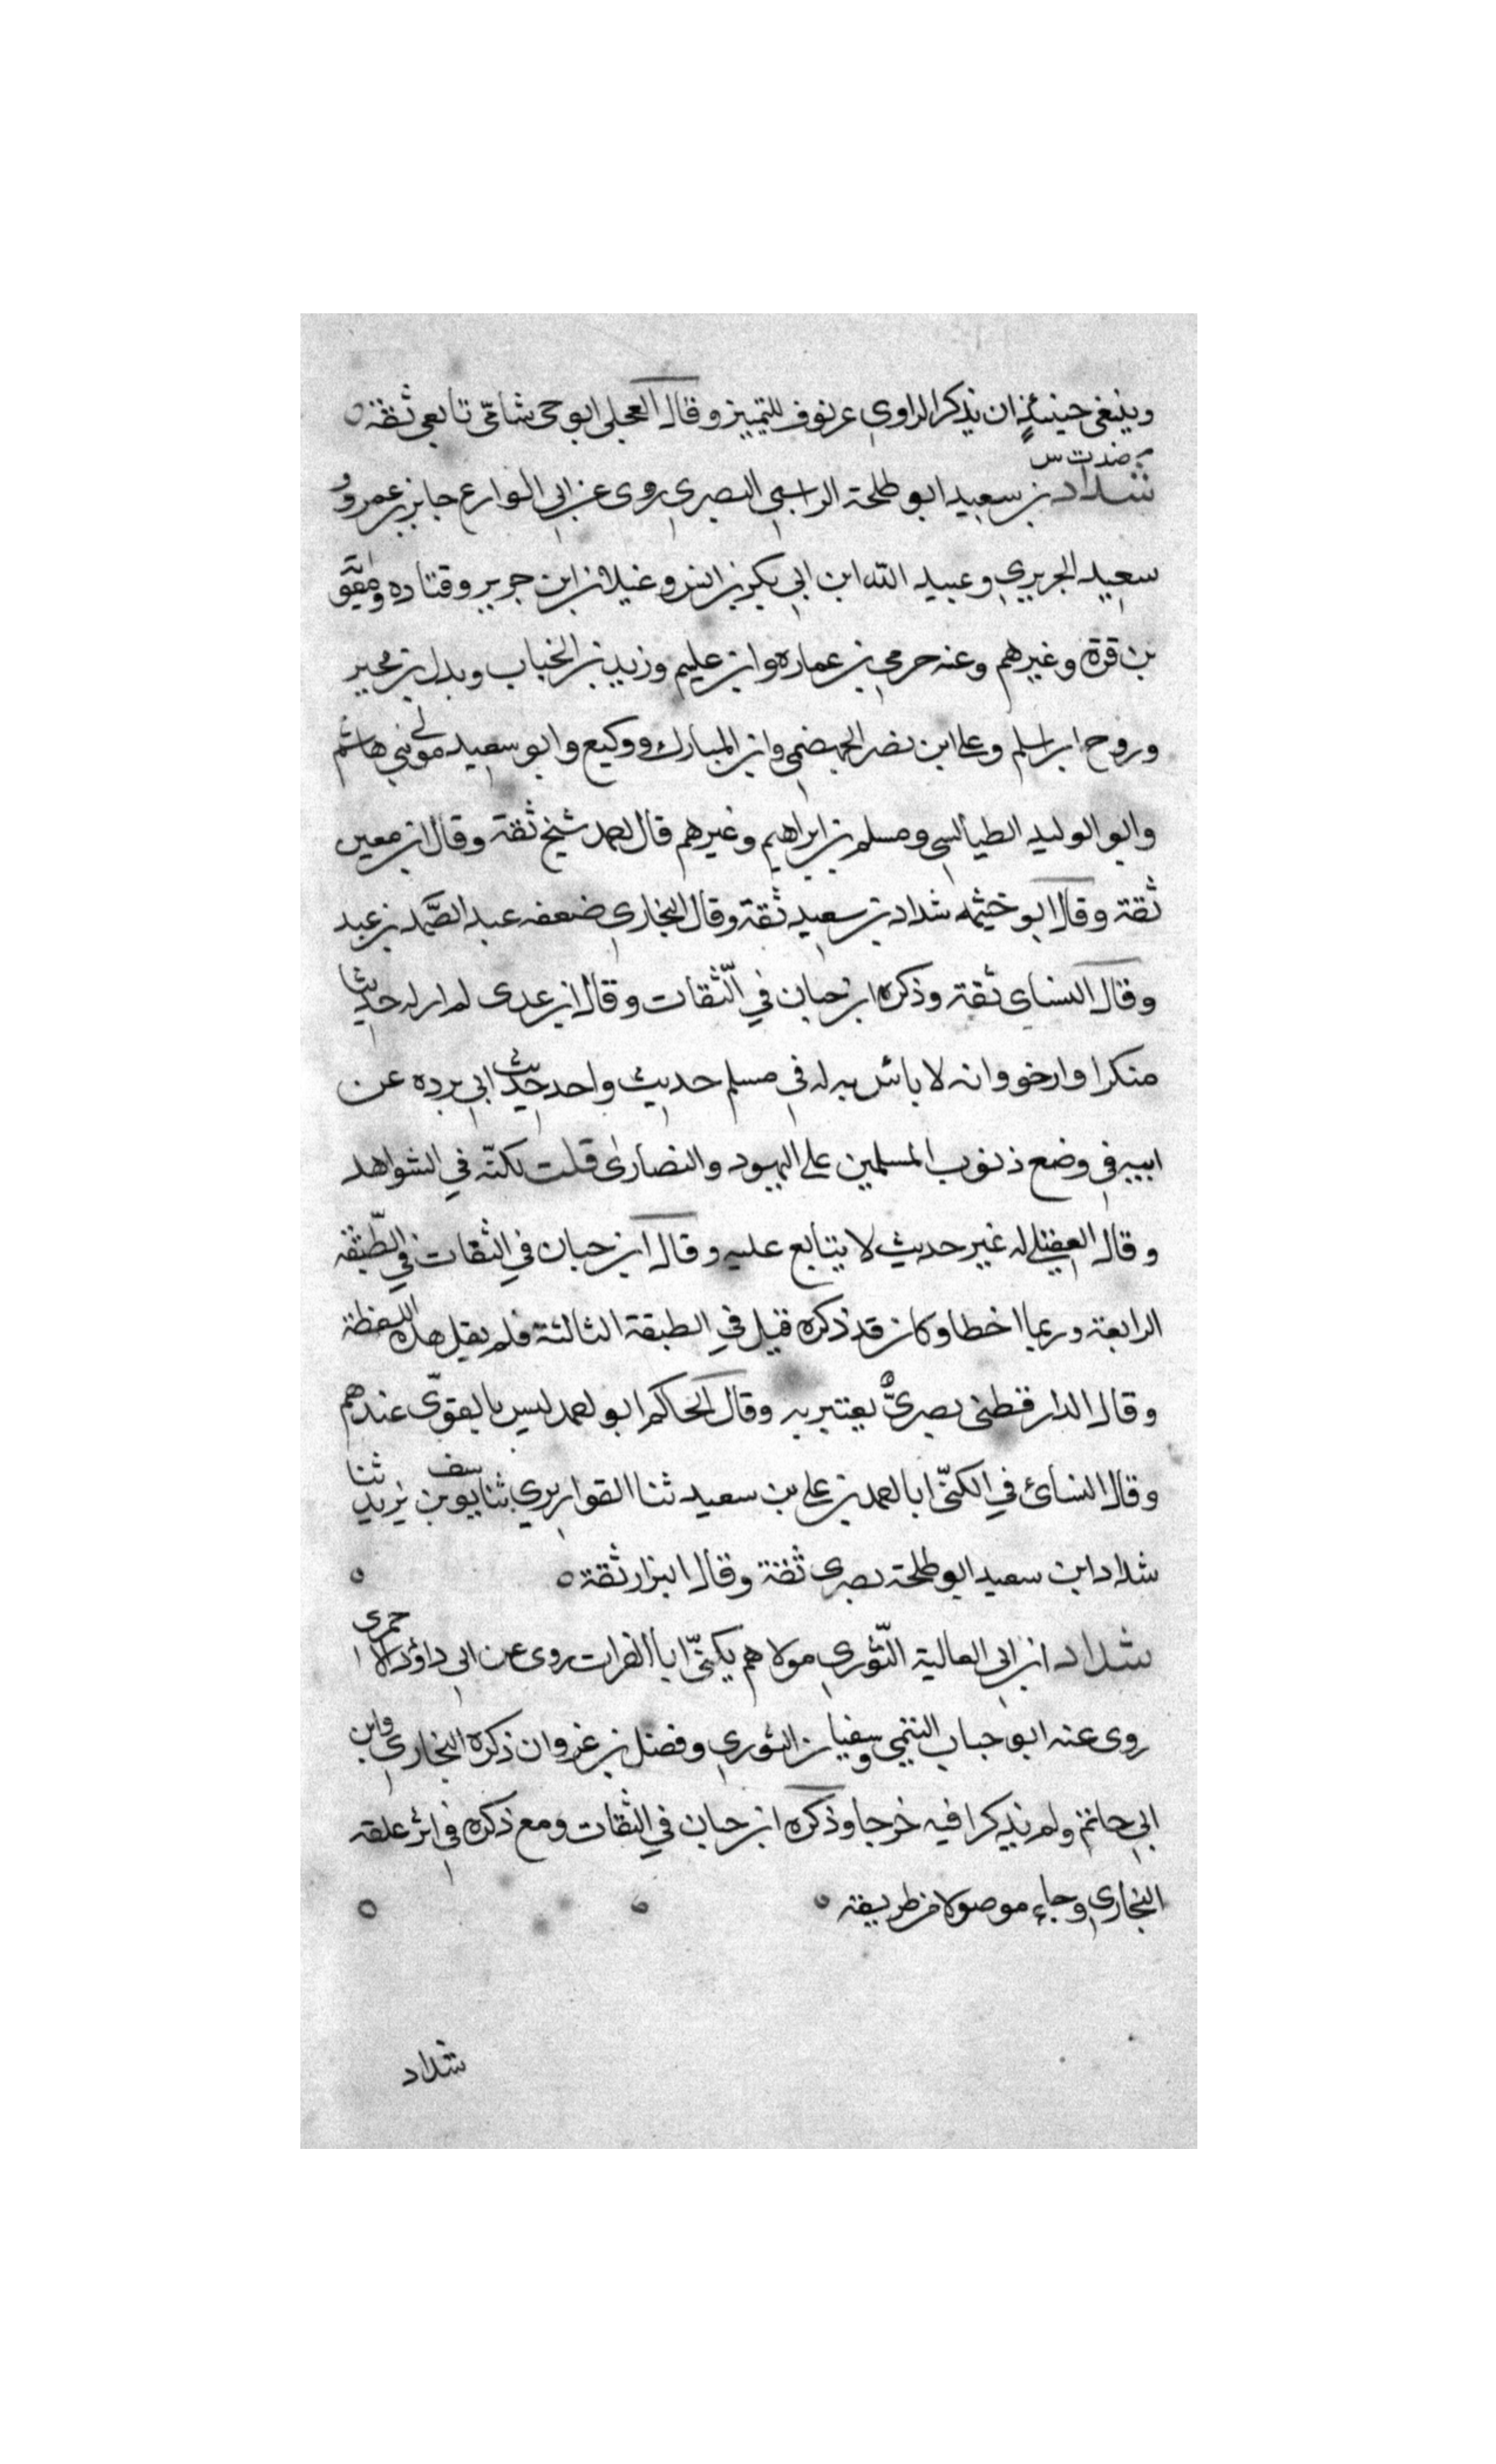 وينبغي حينئذٍ ان يذكر الراوي عن نوف للتمييز وقال العجلي ابو حي شامّي تابعي ثقة ٥
م صد ت س
شداد بن سعيد ابو طلحة الراسبي البصري روى عن ابي الوازع جابر بن عمرو و
سعيد الجريري وعبيد الله ابن ابي بكر بن انس وغيلان ابن جرير وقتاده ومعوية
بن قرة وغيرهم وعنه حرمي بن عماره وابن علية وزيد بن الحباب وبدل بن محبر
وروح ابن اسلم وعلي ابن نصر الجهضمي وابن المبارك ووكيع وابو سعيد مولى بني هاشم
وابو الوليد الطيالسي ومسلم بن ابراهيم وغيرهم قال احمد شيخ ثقة وقال ابن معين
ثقة وقال ابو خيثمه شداد بن سعيد ثقة وقال البخاري ضعفه عبد الصّمد بن عبد
وقال النساي ثقة وذكره ابن حبان في الّثقات وقال ابن عدى لم ار له حديثا
منكرا وارجو انه لا باس به له في مسلم حديث واحد حديث ابي برده عن
ابيه في وضع ذنوب المسلمين على اليهود والنصارى قلت لكنّه في الشواهد
وقال العقيلي له غير حديث لا يتابع عليه وقال ابن حبان في الثقات في الطّبقة
الرابعة وربما اخطا وكان قد ذكره قبل في الطبقة الثالثة فلم يقل هذه اللفظة
وقال الدارقطني بصريٌّ يعتبر به وقال الحاكم ابو احمد ليس بالقويّ عندهم
وقال النسائ في الكنّى ابا احمد بن علي بن سعيد ثنا القواريري ثنا يوسف بن يزيد ثنا
شداد ابن سعيد ابو طلحة بصرى ثقة وقال البزار ثقة ٥ ٥
شداد ابن ابي العالية الثّوري مولاهم يكنّى ابا الفرات روى عن ابي داؤد الاحمرى
روى عنه ابو حباب التيمي وسفيان الثوري وفضل بن غزوان ذكره البخاري وابن
ابي حاتم ولم يذكرا فيه خرجا وذكره ابن حبان في الثقات ومع ذكره في اثر علقه
البخاري وجاء موصولا من طريقه ٥ ٥ ٥
شداد